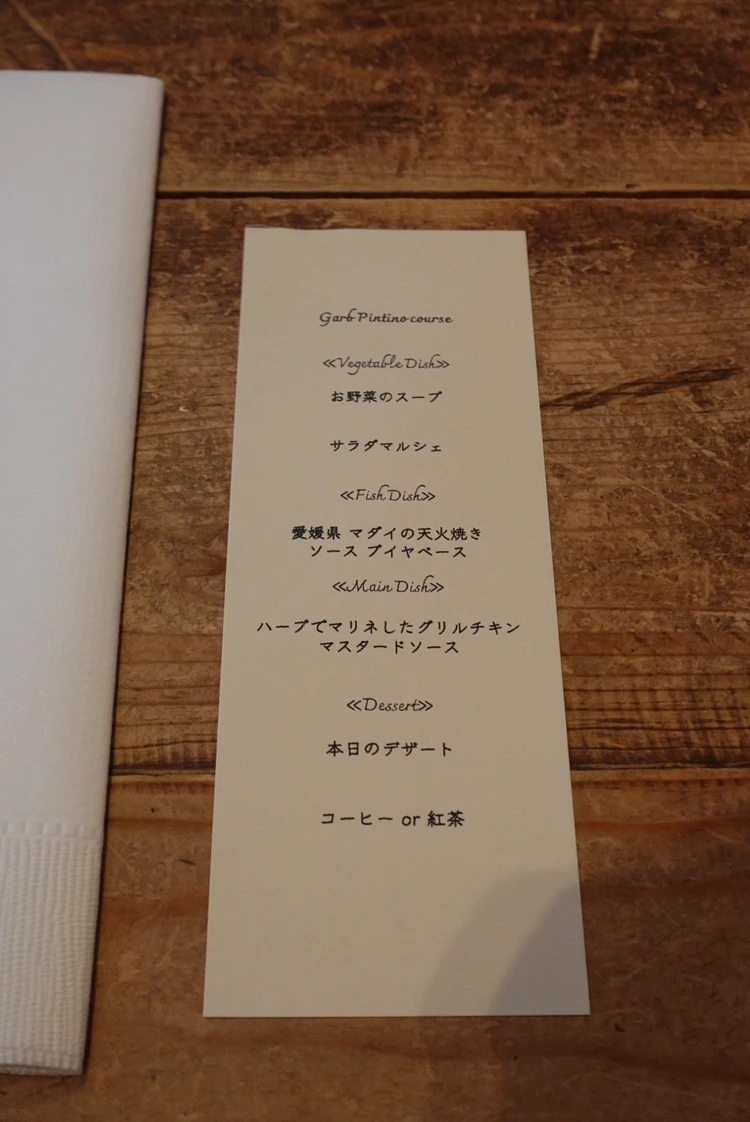 Garb Pintino course
≪Vegetable Dish≫
お野菜のスープ
サラダマルシェ
≪Fish Dish≫
愛媛県 マダイの天火焼き
ソース ブイヤベース
≪Main Dish≫
ハーブでマリネしたグリルチキン
マスタードソース
≪Dessert≫
本日のデザート
コーヒー or 紅茶